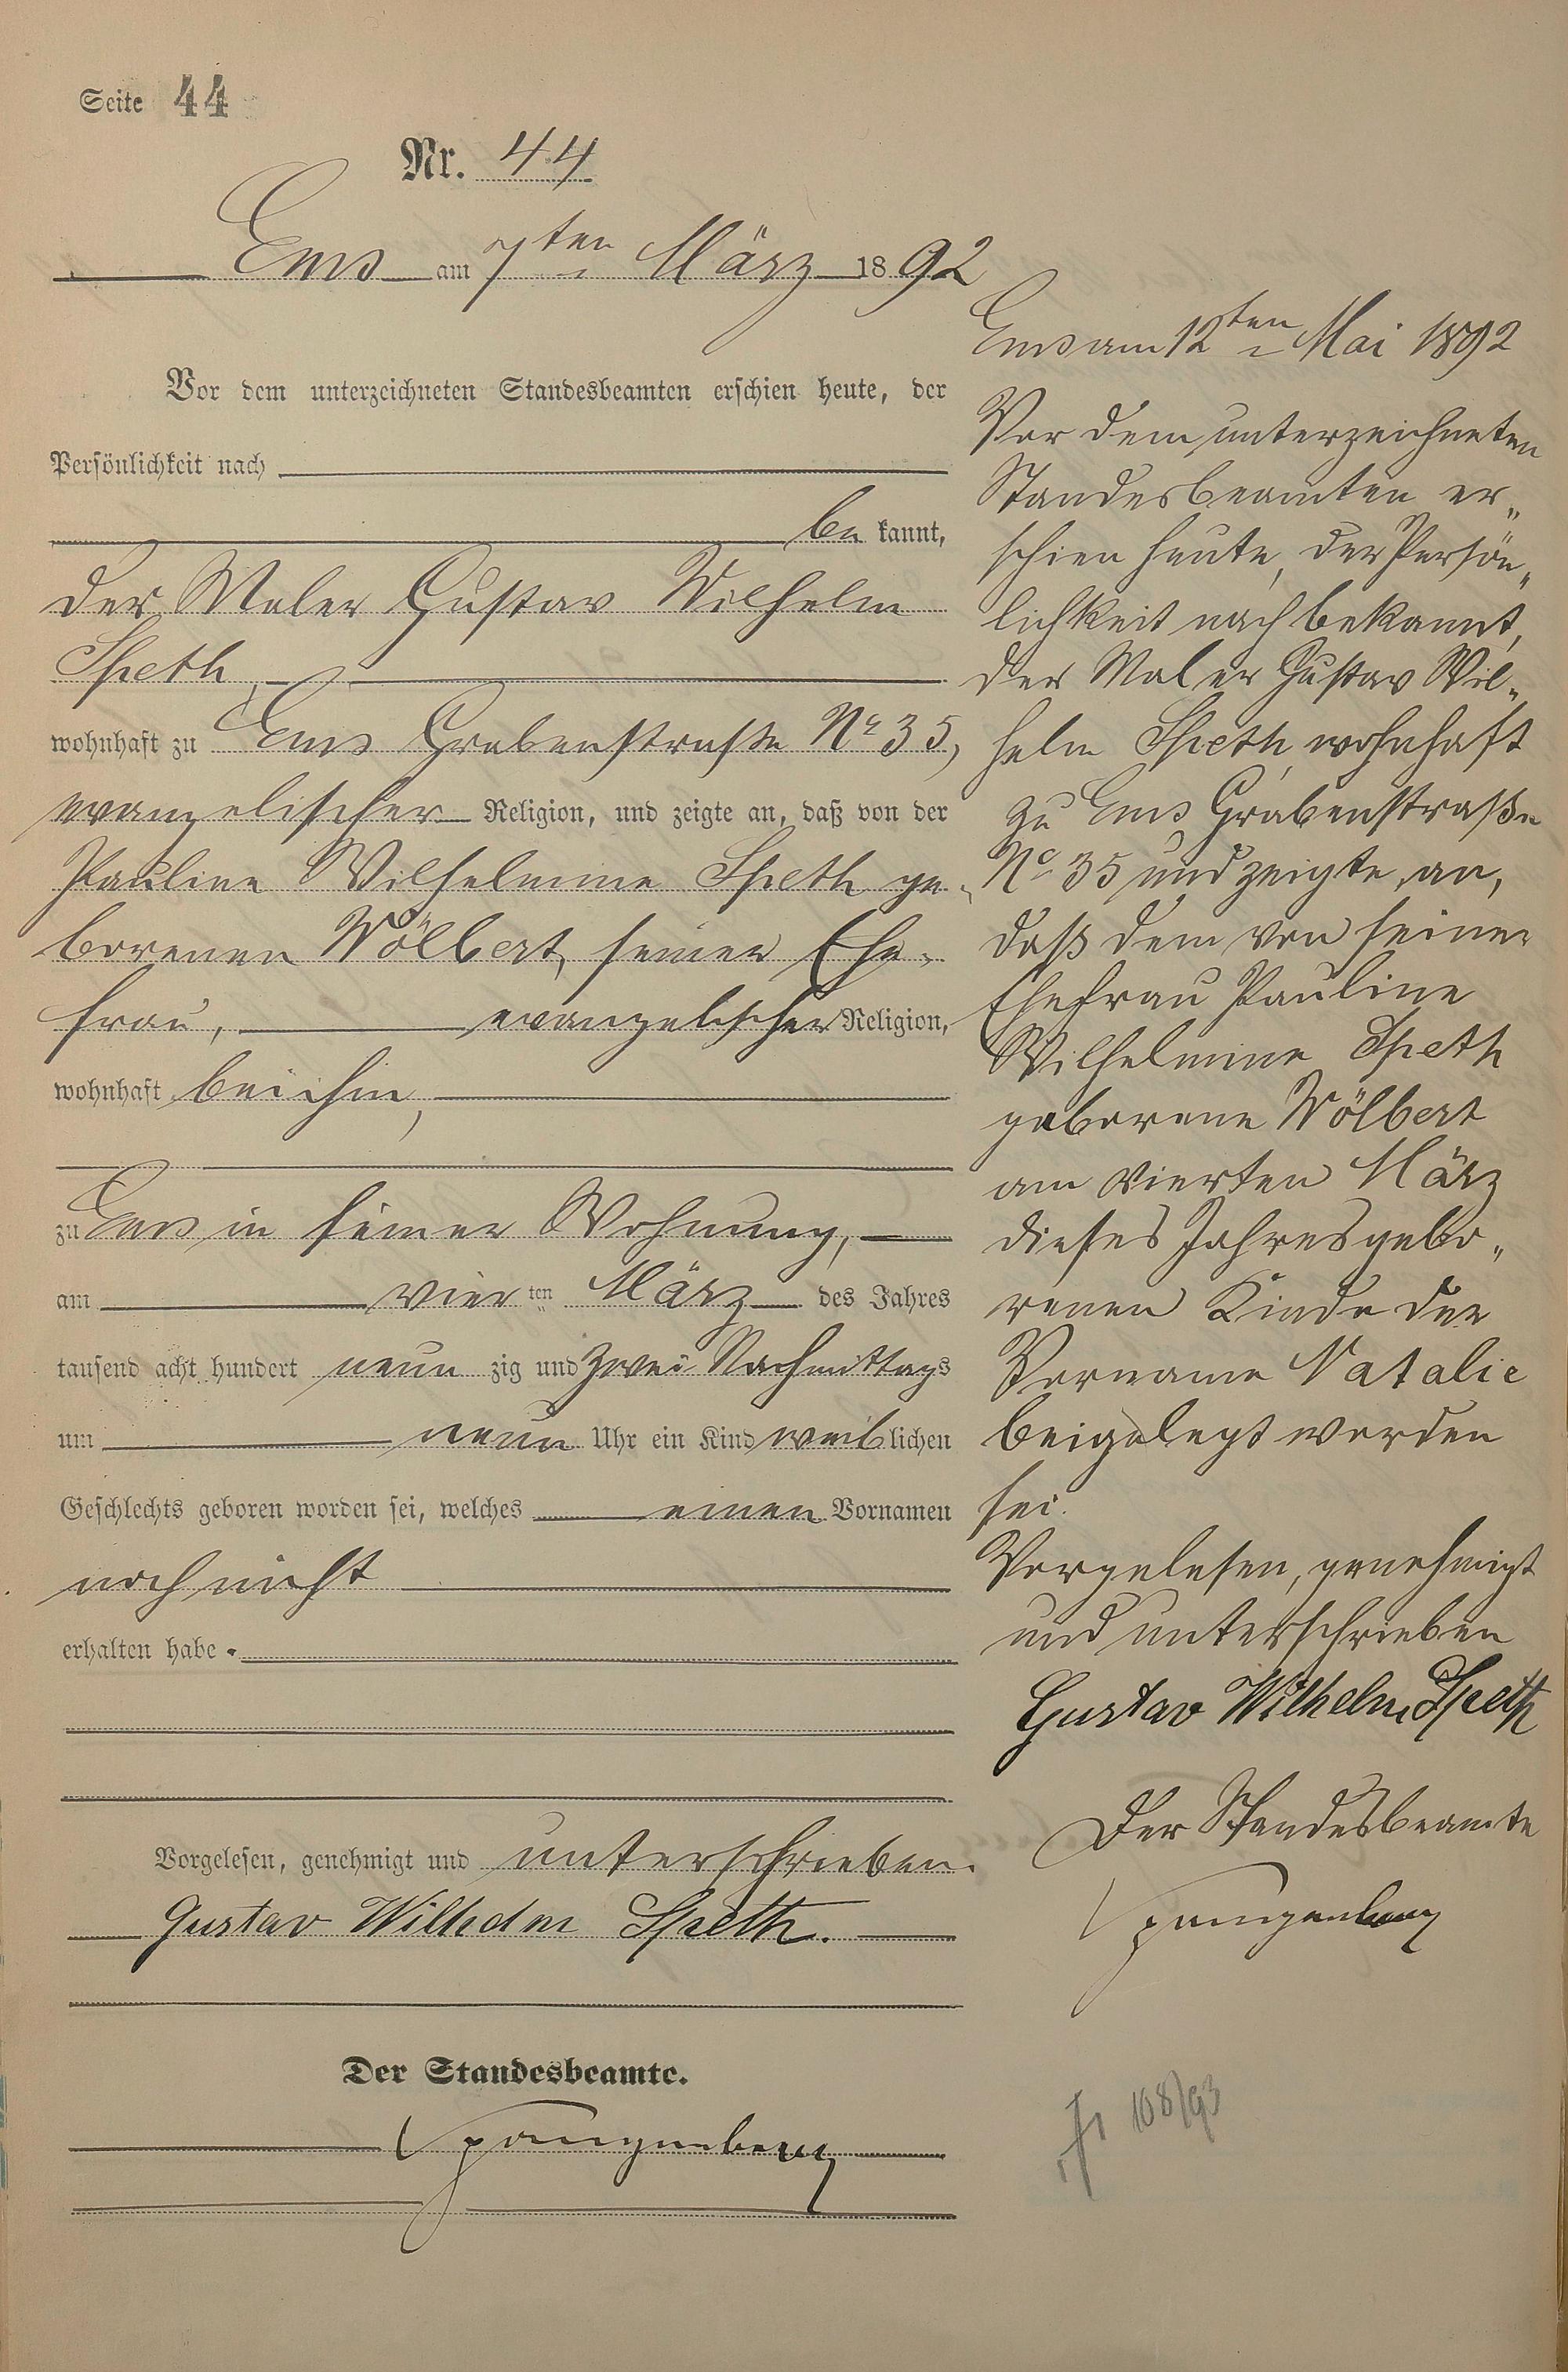 Seite 44
Nr. 44
Ems am 7ten März 1892
Vor dem unterzeichneten Standesbeamten erschien heute, der
Persönlichkeit nach
be kannt,
der Maler Gustav Wilhelm
Speth,
wohnhaft zu Ems Grabenstraße No 35,
evangelischer Religion, und zeigte an, daß von der
Pauline Wilhelmine Speth ge-
borenen Wölbert, seiner Ehe-
frau, evangelischer Religion,
wohnhaft bei ihm,
zu Ems in seiner Wohnung,
am vier ten März des Jahres
tausend acht hundert neun zig und zwei Nachmittags
um neun Uhr ein Kind weiblichen
Geschlechts geboren worden sei, welches einen Vornamen
noch nicht
erhalten habe.
Vorgelesen, genehmigt und unterschrieben.
Gustav Wilhelm Speth.
Der Standesbeamte.
Spangenberg
Ems am 12ten Mai 1892
Vor dem unterzeichneten
Standesbeamten er-
schien heute, der Persön-
lichkeit nach bekannt,
der Maler Gustav Wil-
helm Speth, wohnhaft
zu Ems Grabenstraße
No 35 und zeigte, an,
daß dem von seiner
Ehefrau Pauline
Wilhelmine Speth
geborene Wölbert
am vierten März
dieses Jahres gebo-
renen Kinde der
Vorname Natalie
beigelegt worden
sei.
Vorgelesen, genehmigt
und unterschrieben
Gustav Wilhelm Speth
Der Standesbeamte
Spangenberg
108/93